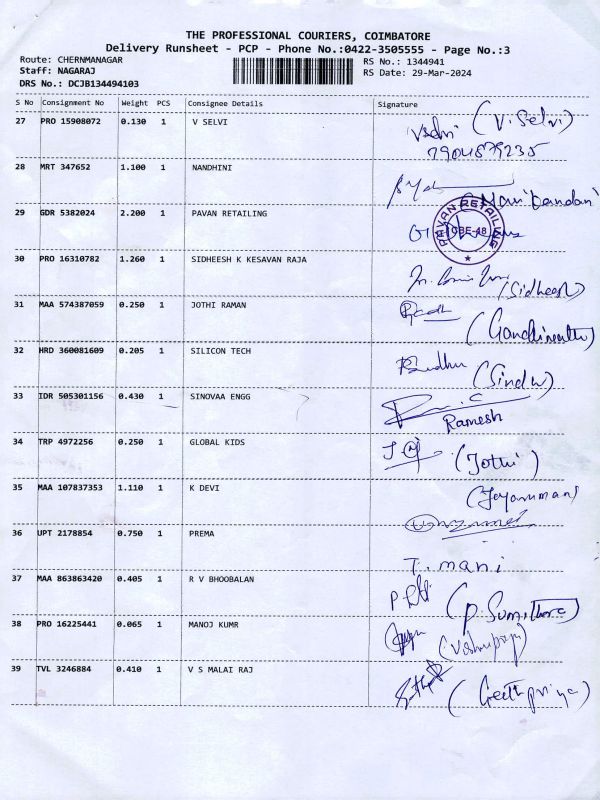 THE PROFESSIONAL COURIERS, COIMBATORE
Delivery Runsheet - PCP - Phone No.:0422-3505555 - Page No.:3
Route: CHERNMANAGAR RS No.: 1344941
Staff: NAGARAJ RS Date: 29-Mar-2024
DRS No.: DCJB134494103
S No Consignment No Weight PCS Consignee Details Signature
27 PRO 15908072 0.130 1 V SELVI (V. Selvi)
7904879235
28 MRT 347652 1.100 1 NANDHINI
Manikandan
29 GDR 5382024 2.200 1 PAVAN RETAILING PAVAN RETAILING CBE-48
30 PRO 16310782 1.260 1 SIDHEESH K KESAVAN RAJA
(Sidheesh)
31 MAA 574387059 0.250 1 JOTHI RAMAN
32 HRD 360081609 0.205 1 SILICON TECH
(Sindhu)
33 IDR 505301156 0.430 1 SINOVAA ENGG
Ramesh
34 TRP 4972256 0.250 1 GLOBAL KIDS (Jothi)
35 MAA 107837353 1.110 1 K DEVI
36 UPT 2178854 0.750 1 PREMA
T. mani
37 MAA 863863420 0.405 1 R V BHOOBALAN
38 PRO 16225441 0.065 1 MANOJ KUMR
39 TVL 3246884 0.410 1 V S MALAI RAJ
(Geethpriya)